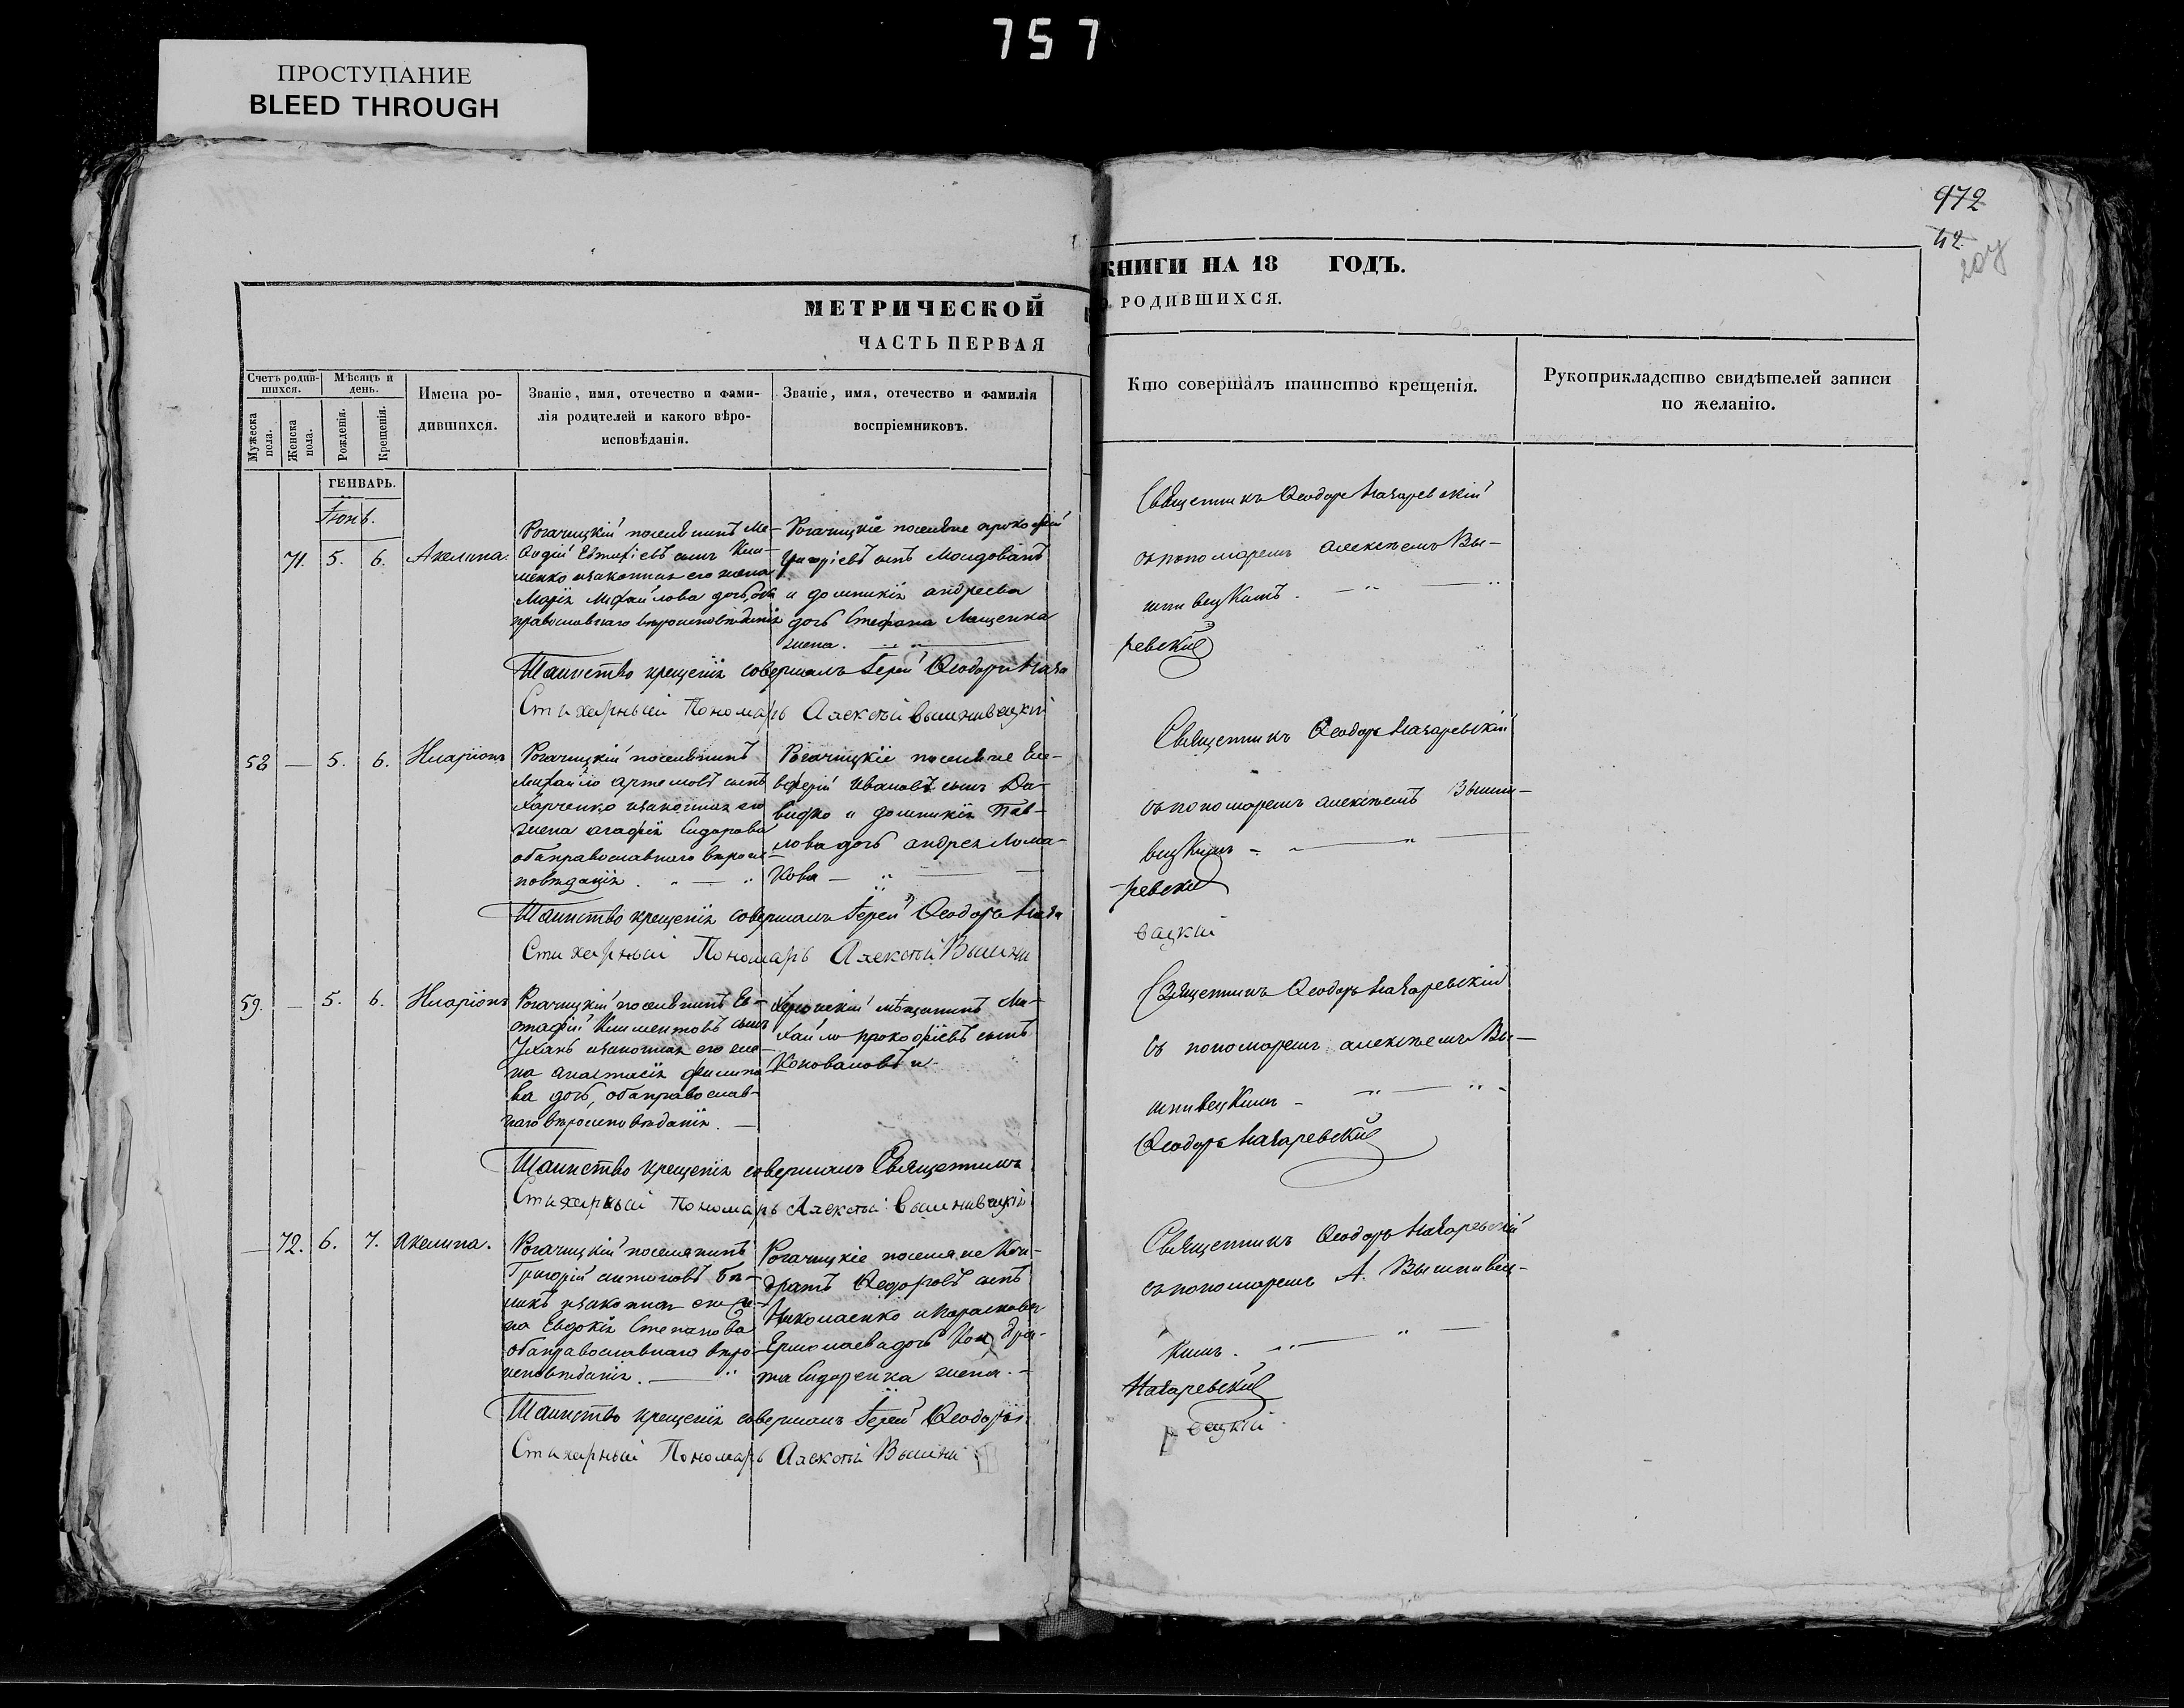 757
ПРОСТУПАНИЕ
BLEED THROUGH
972
42
МЕТРИЧЕСКОЙ КНИГИ НА 18 ГОДЪ.
ЧАСТЬ ПЕРВАЯ О РОДИВШИХСЯ.
Счетъ родив-
шихся.
Мужеска
пола.
Женска
пола.
Мѣсяцъ и
день.
Рожденія.
Крещенія.
Имена ро-
дившихся.
Званіе, имя, отечество и фами-
лія родителей и какого вѣро-
исповѣданія.
Званіе, имя, отечество и фамилія
воспріемниковъ.
Кто совершалъ таинство крещенія.
Рукоприкладство свидѣтелей записи
по желанію.
ГЕНВАРЬ.
Іюнь.
71. 5. 6. Акелина.
Рогачицкій поселянинъ Ме-
фодій Евтихіевъ сынъ Кли-
менко и законная его жена
Марія Михайлова дочь, оба
православнаго вѣроисповѣданія
Рогачицкіе поселяне Прокофій
Григоріевъ сынъ Молдованъ
и Домникія Андреева
дочь Стефана Лащенка
жена.
Священникъ Ѳеодоръ Назаревскій
съ пономаремъ Алексѣемъ Вы-
шнивецкимъ.
Таинство крещенія совершалъ Іерей Ѳеодоръ Наза
ревскій
Стихарный Пономарь Алексѣй Вышнивецкій
58 — 5. 6. Иларіонъ
Рогачицкій поселянинъ
Михайло Артемовъ сынъ
Харченко и законная его
жена Агафія Сидорова
оба православнаго вѣроис-
повѣданія.
Рогачицкіе поселяне Еле-
вферій Ивановъ сынъ Да-
видко и Домникія Пав-
лова дочь Андрея Лома-
кова
Священникъ Ѳеодоръ Назаревскій
съ пономаремъ Алексѣемъ Вышни-
вецкимъ
Таинство крещенія совершалъ Іерей Ѳеодоръ Наза
ревскій
Стихарный Пономарь Алексѣй Вышни
вецкій
59. — 5. 6. Иларіонъ
Рогачицкій поселянинъ Ев-
стафій Климентовъ сынъ
и законная его же-
на Анастасія Филипо-
ва дочь, оба православ-
наго вѣроисповѣданія.
Херсонскій мѣщанинъ Ми-
хайло Прокофіевъ сынъ
Коноваловъ и
Священникъ Ѳеодоръ Назаревскій
съ пономаремъ Алексѣемъ Вы-
шнивецкимъ
Таинство крещенія совершалъ Священникъ
Ѳеодоръ Назаревскій
Стихарный Пономарь Алексѣй Вышнивецкій
— 72. 6. 7. Акелина.
Рогачицкій поселянинъ
Григорій Антоновъ
и законная его же-
на Евдокія Степанова
оба православнаго вѣро-
исповѣданія.
Рогачицкіе поселяне Кон-
дратъ Ѳедоровъ сынъ
Николаенко и Параскева
Ермолаева дочь Кондра-
та Сидоренка жена.
Священникъ Ѳеодоръ Назаревскій
съ пономаремъ А. Вышнивец-
кимъ.
Таинство крещенія совершалъ Іерей Ѳеодоръ
Назаревскій
Стихарный Пономарь Алексѣй Вышни
вецкій